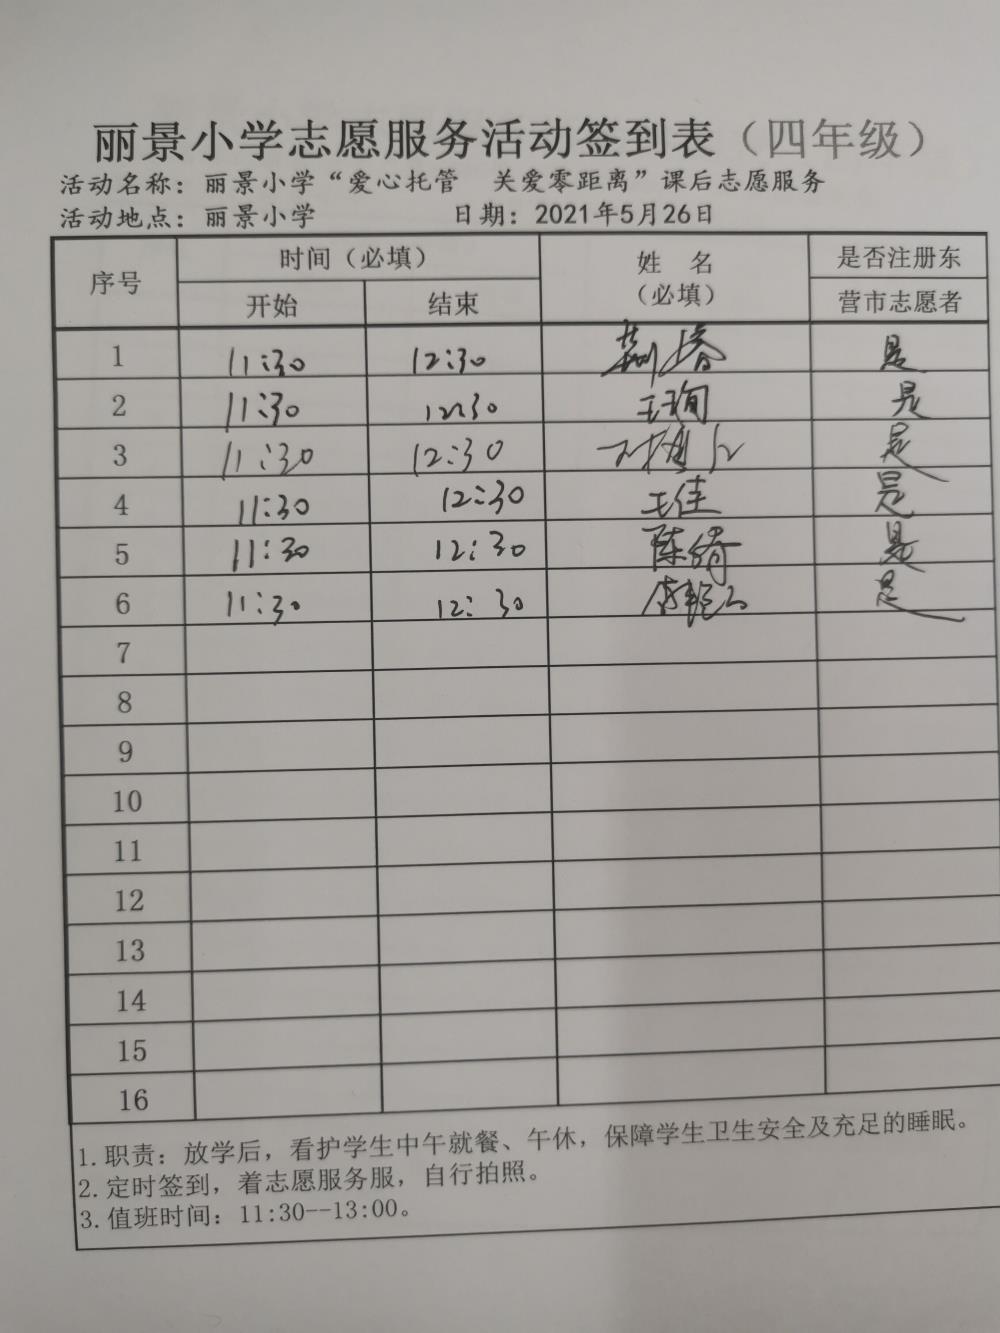 丽景小学志愿服务活动签到表（四年级）
活动名称：丽景小学“爱心托管 关爱零距离”课后志愿服务
活动地点：丽景小学 日期：2021年5月26日
序号 时间（必填） 姓 名 是否注册东
开始 结束 （必填） 营市志愿者
1 11:30 12:30 是
2 11:30 12:30 王珣 是
3 11:30 12:30 是
4 11:30 12:30 王佳 是
5 11:30 12:30 陈绮 是
6 11:30 12:30 是
7
8
9
10
11
12
13
14
15
16
1.职责：放学后，看护学生中午就餐、午休，保障学生卫生安全及充足的睡眠。
2.定时签到，着志愿服务服，自行拍照。
3.值班时间：11:30--13:00。